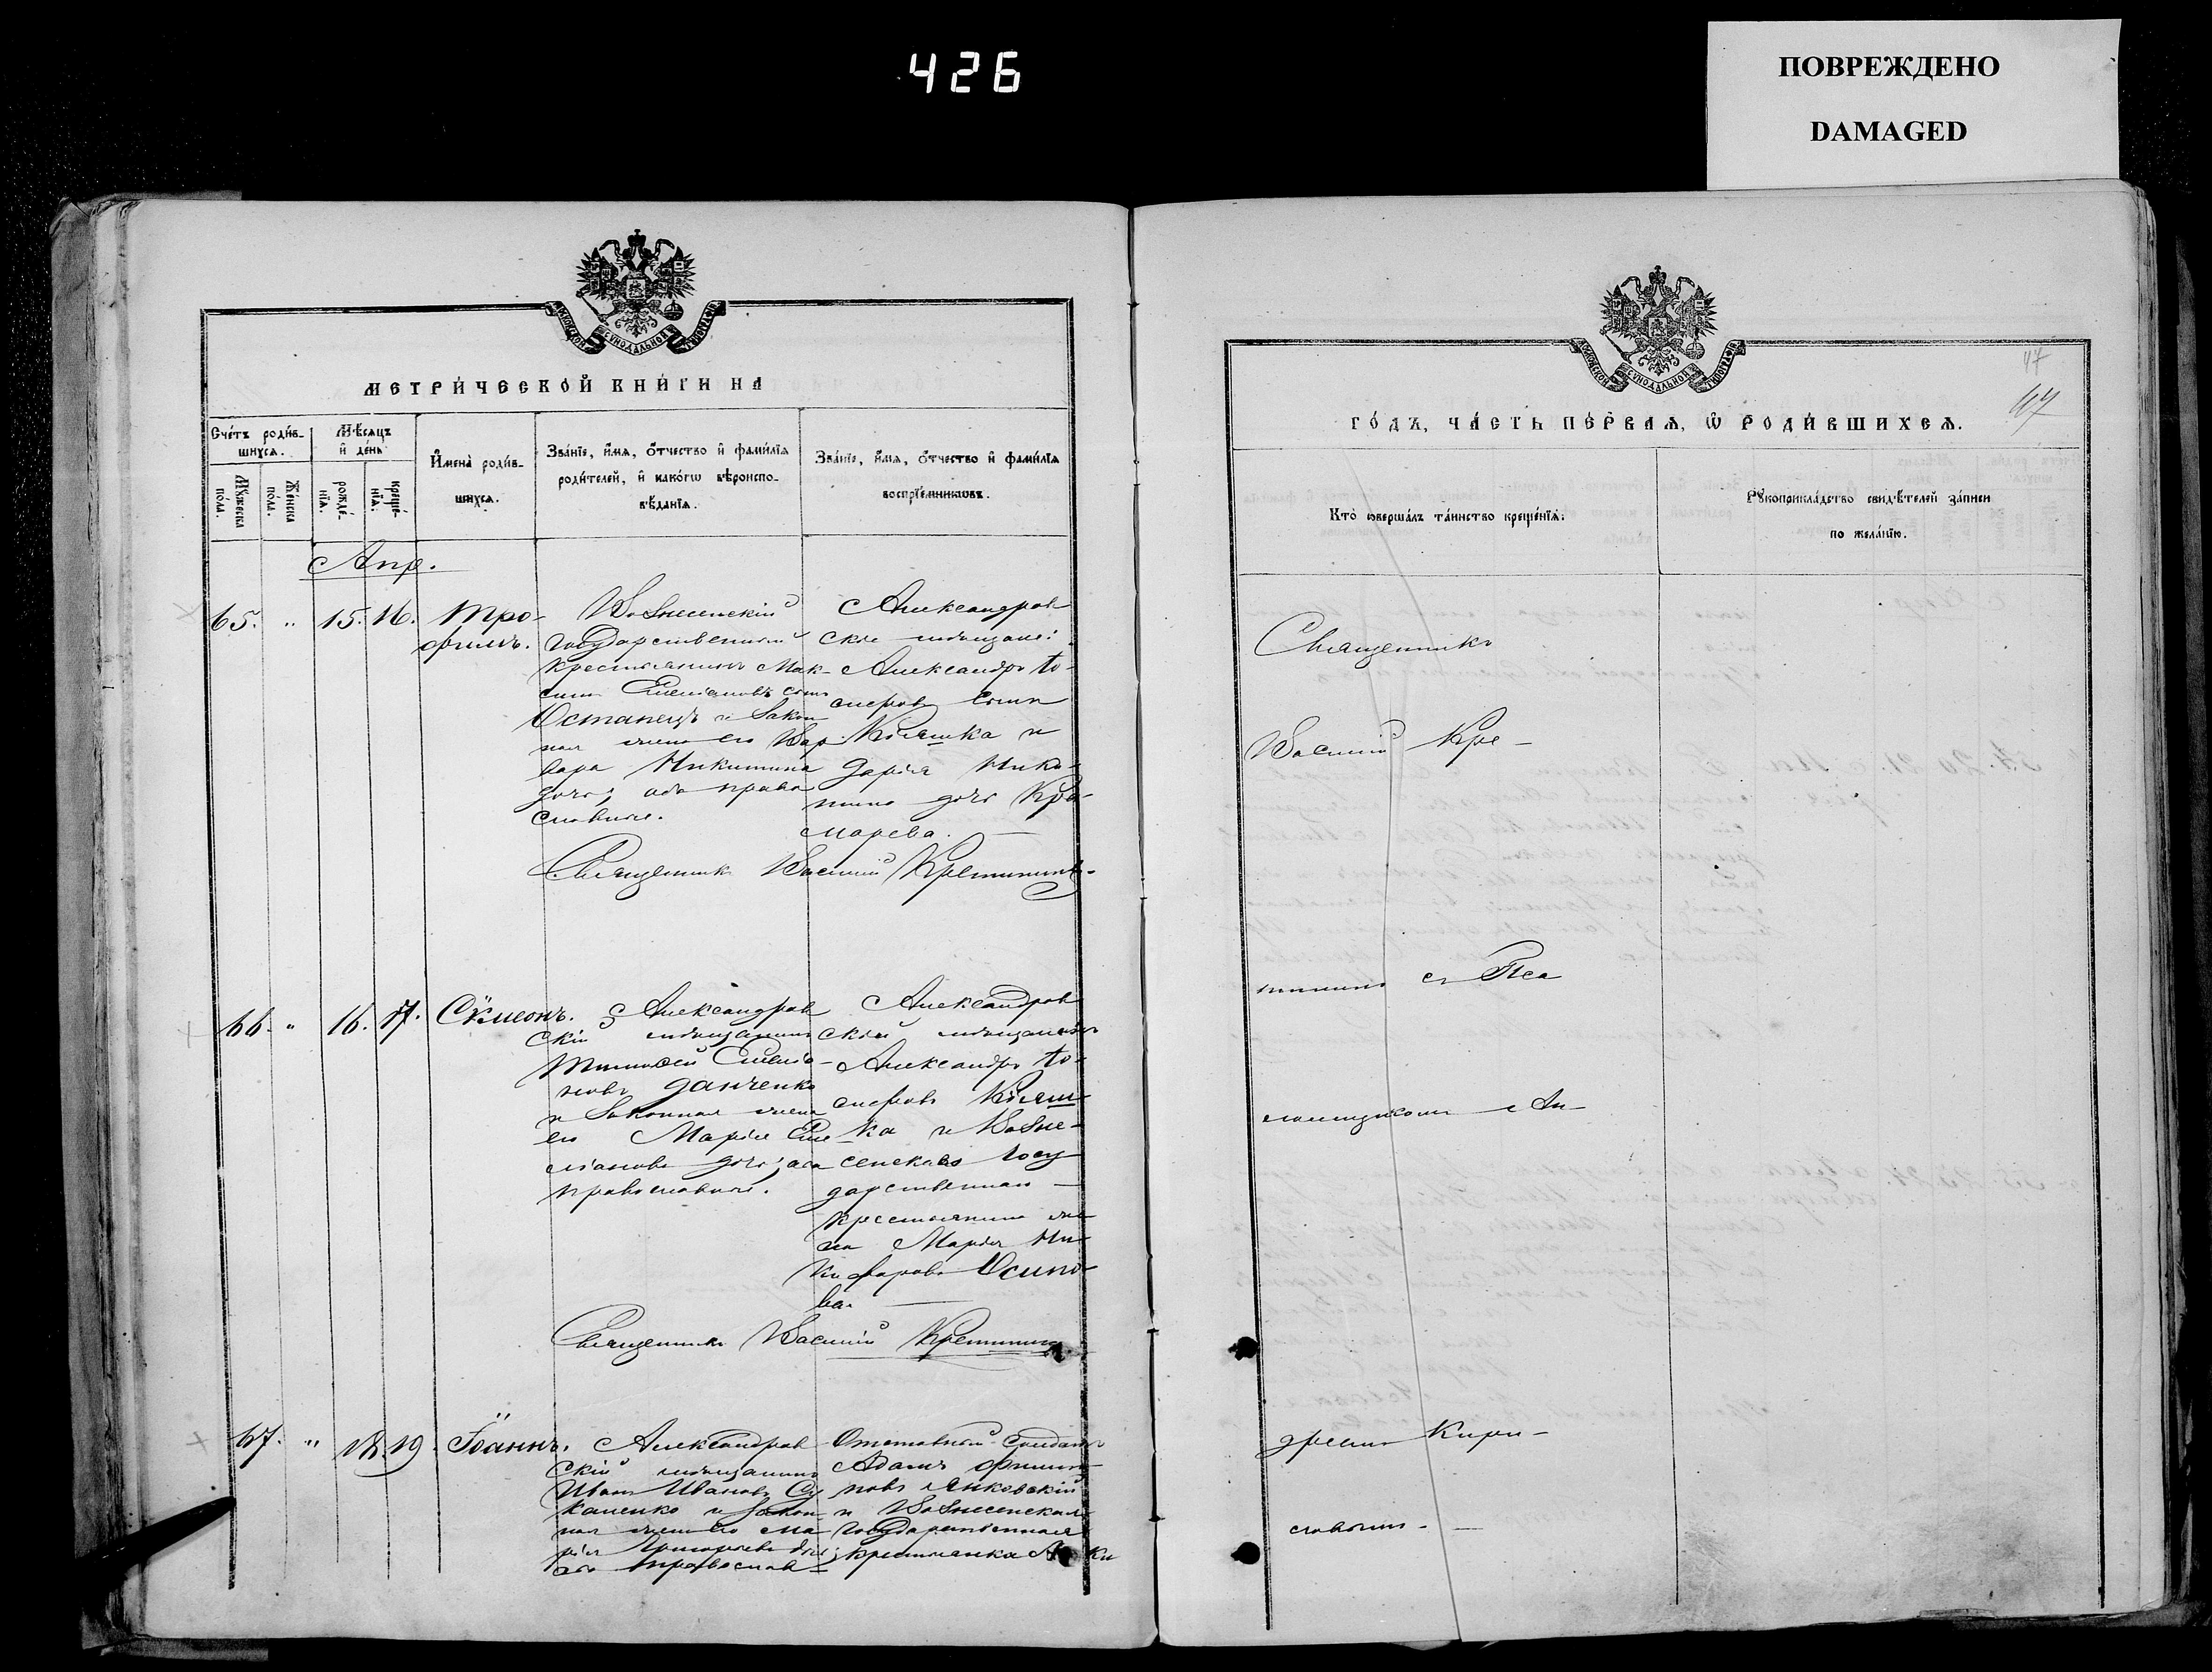 426
ПОВРЕЖДЕНО
DAMAGED
МЕТРИЧЕСКОЙ КНИГИ НА
Счетъ родив-
шихся.
Мѣсяцъ
и день
Мужеска
пола.
Женска
пола.
рожде-
нія.
креще-
нія.
Имена родив-
шихся.
Званіе, имя, отчество и фамилія
родителей, и какогω вѣроиспо-
вѣданія.
Званіе, имя, отчество и фамилія
воспріемниковъ.
Апр.
65. " 15. 16.
Тро-
фимъ.
Вознесенскій
государственный
крестьянинъ Мак-
симъ Емеліановъ сынъ
Останецъ и закон
ная жена его Вар-
вара Никитина
дочь; оба право
славные.
Александров
скіе мѣщане:
Александръ Іо-
сифовъ сынъ
Коляшка и
Дарія Ники-
тина дочь Кра-
марева.
Священникъ Василій Кретининъ
66. " 16. 17.
Сѵмеонъ.
Александров
скій мѣщанинъ
Тимофей Емелія-
новъ Данченко
и законная жена
его Марія Еме-
ліанова дочь; оба
православные.
Александров
скій мѣщанинъ
Александръ Іо-
сифовъ Коляш-
ка и Возне-
сенскаго госу
дарственнаго
крестьянина же
на Марія Ни-
кифорова Осипо-
ва.
Священникъ Василій Кретининъ
67. " 18. 19.
Іоаннъ.
Александров
скій мѣщанинъ
Иванъ Ивановъ Су
каленко и закон-
ная жена его Ма
рія Григорьева дочь;
оба православ-
Отставный солдатъ
Адамъ Филип-
повъ Янковскій
и Вознесенская
государственная
крестьянка
МОСКОВСКОЙ СѴНОДАЛЬНОЙ ТИПОГРАФІИ
47
47
ГОДЪ, ЧАСТЬ ПЕРВАЯ, Ѡ РОДИВШИХСЯ.
Кто совершалъ таинство крещенія.
Рукоприкладство свидѣтелей записи
по желанію.
Священникъ
Василій Кре-
тининъ съ Пса
ломщикомъ Ан-
дреемъ Кири-
ловымъ.